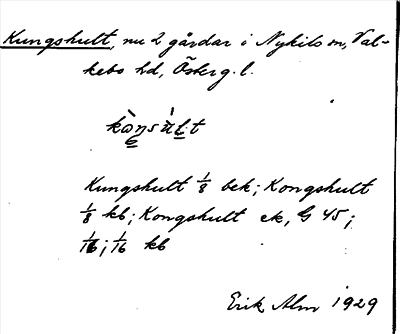 Kungshult, nu 2 gårdar i Nykils sn, Val-
kebo hd, Österg. l.
Kungshult 1/8 bek; Kongshult
1/8 kb; Kongshult ek, G 45;
1/16; 1/16 kb
Erik Alm 1929